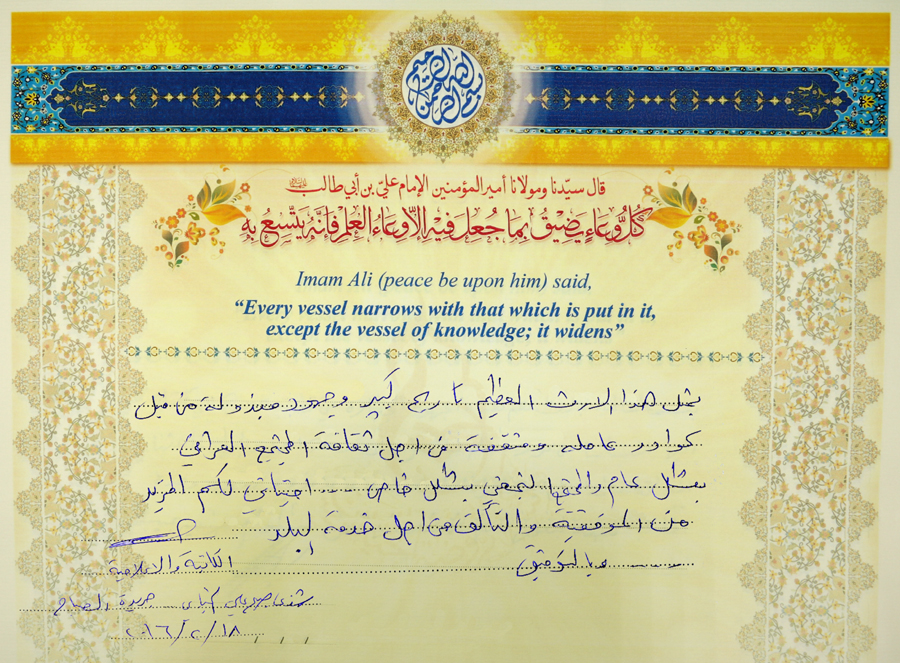 بسم الله الرحمن الرحيم
قال سيّدنا ومولانا أمير المؤمنين الإمام عليّ بن أبي طالب
كُلُّ وِعَاءٍ يَضِيْقُ بِمَا جُعِلَ فِيْهِ إِلاّ وِعَاءُ العِلْمِ فَإِنَّهُ يَتَّسِعُ بِهِ
Imam Ali (peace be upon him) said,
“Every vessel narrows with that which is put in it,
except the vessel of knowledge; it widens”
يمثل هذا الارث العظيم تاريخ كبير وجهود مبذولة من قبل
كوادر عاملة ومثقفة من اجل ثقافة المجتمع العراقي
بشكل عام والمجتمع النجفي بشكل خاص ... احتياتي لكم المزيد
من الموفقية والتألق من اجل خدمة البلد
وبالتوفيق
الكاتبة والاعلامية
جريدة الصباح
٢٠١٦/٢/١٨